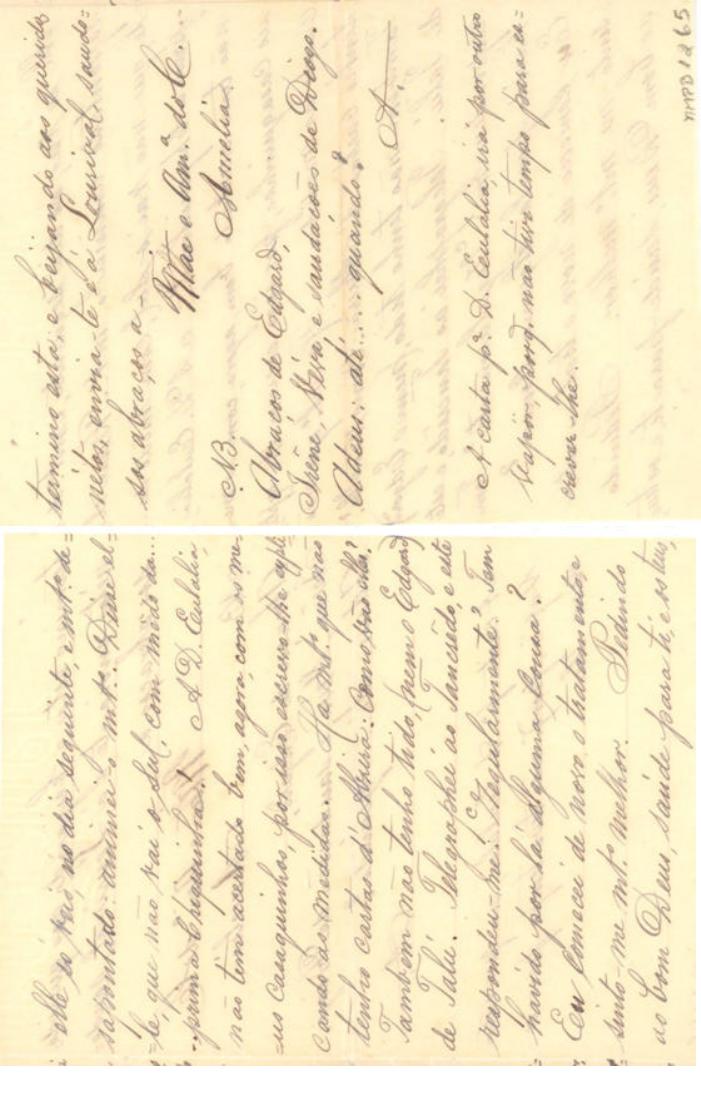 elle só veiu, no dia seguinte, e mtº. de=
sapontado: animei-o mtº. Disse el=
=le, que não vai o Sul, com medo da...
..prima Chiquinha! A D. Eulalia,
não tem aceitado bem, agora, com os me=
=us casaquinhos, por isso escrevo-lhe expli
cando as medidas. Ha mtº. que não
tenho cartas d'Abreu: Como vão elles?
Tambem não tenho tido, (nem o Edgard)
de Talú. Telegraphei ao Tancrêdo, e este
respondeu-me: "regularmente"? Tem
havido por lá alguma cousa?
Eu comecei de novo o tratamento, e
sinto-me mtº. melhor. Pedindo
ao bom Deus, saúde para ti, e os teus,
termino esta, e beijando aos queridos
netos, envia-te e á Lourival, saudo=
sos abraços a -
Mãe e Amª. do C.
Amelia.
NB.
Abraços de Edgard,
Irene, Néva e saudações de Diogo.
Adeus: até.... quando?
A.
A carta pª. D. Eulalia, irá por outro
vapôr, porq. não tive tempo para es=
crever-lhe.
MMPD1265